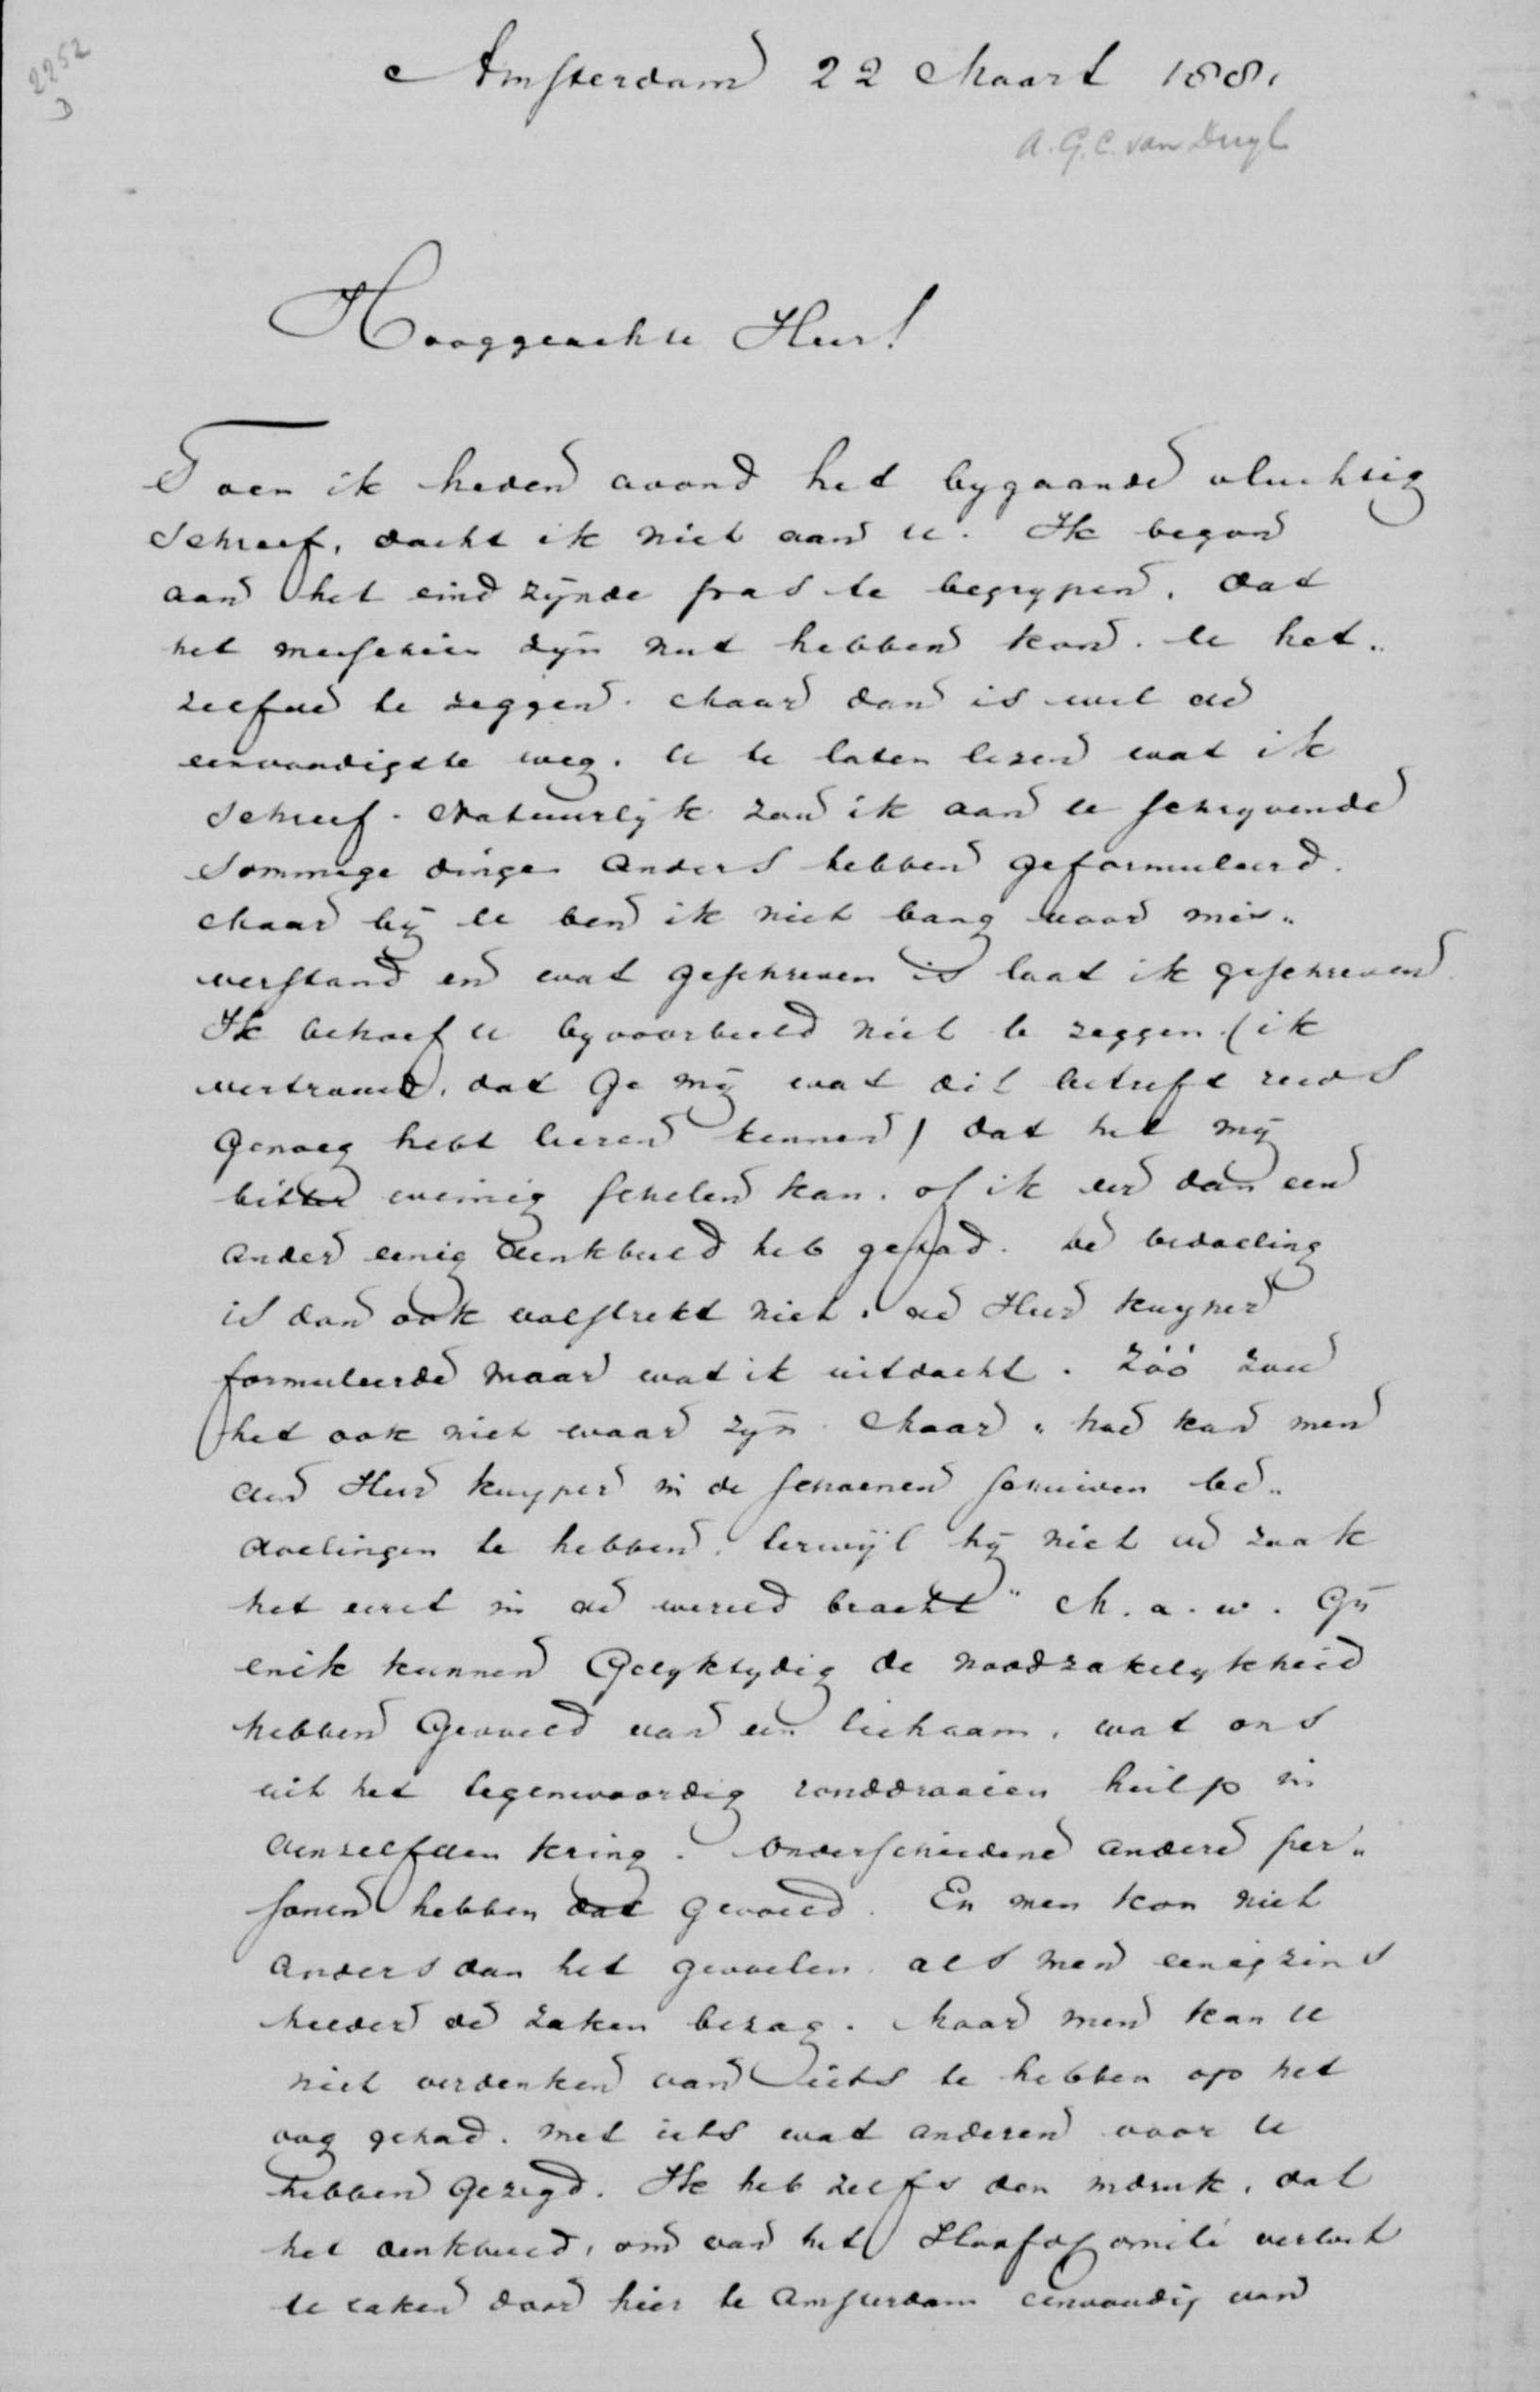 2252
D
Amsterdam 22 Maart 1881
A.G.C. van Duyl
Hooggeachte Heer!
Toen ik heden avond het bygaande vluchtig
schreef, dacht ik niet aan U. Ik begon
aan het eind zynde pas te begrypen, dat
het misschien zyn nut hebben kon U het„
zelfde te zeggen. Maar dan is wel de
eenvoudigste weg, U te laten lezen wat ik
schreef. Natuurlyk zou ik aan U schryvende
sommige dingen anders hebben geformuleerd.
Maar by U ben ik niet bang voor mis„
verstand en wat geschreven is laat ik geschreven.
Ik behoef U byvoorbeeld niet te zeggen (ik
vertrouw, dat Ge my wat dit betreft reeds
genoeg hebt leeren kennen) dat het my
bitter weinig schelen kan, of ik dan een
ander eenig denkbeeld heb gehad. De bedoeling
is dan ook volstrekt niet, de Heer Kuyper
formuleerde maar wat ik uitdacht. Zóó zou
het ook niet waar zyn. Maar „ hoe kan men
den Heer Kuyper in de schoenen schuiven be„
doelingen te hebben, terwyl hy niet de zaak
het eerst in de wereld bracht" M.a.w. Gy
en ik kunnen gelyktydig de noodzakelykheid
hebben gevoeld van een lichaam, wat ons
uit het tegenwoordig ronddraaien hielp in
denzelfden kring. Onderscheidene andere per„
sonen hebben dat gevoeld. En men kon niet
anders dan het gevoelen als men eenigzins
helder de zaken bezag. Maar men kan U
niet verdenken van iets te hebben op het
oog gehad, met iets wat anderen voor U
hebben gezegd. Ik heb zelfs den indruk, dat
het denkbeeld, om van het Hoofdcomité verlost
te raken door hier te Amsterdam eenvoudig van